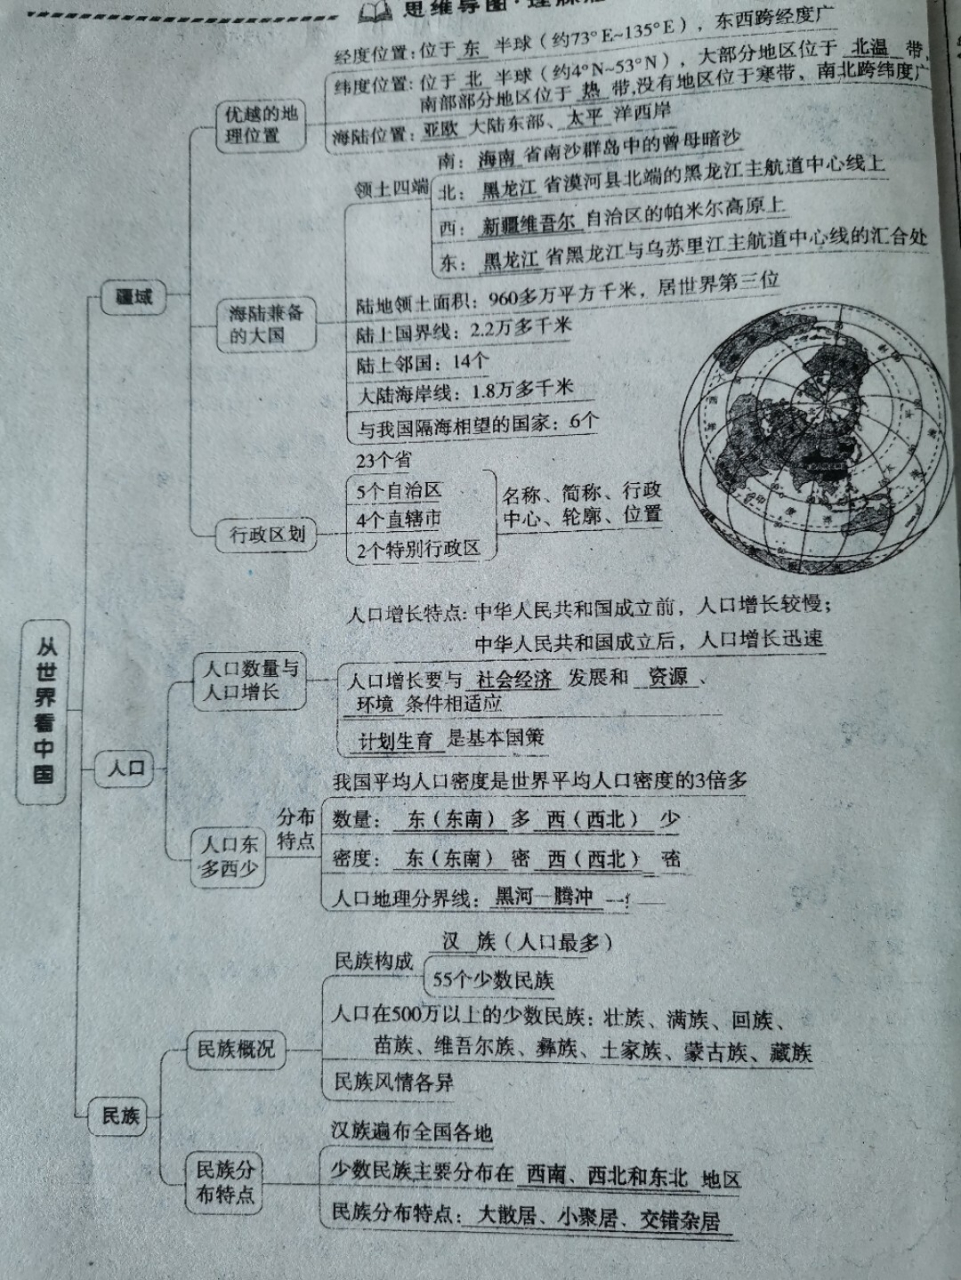 思维导图·理脉络
经度位置：位于 东 半球（约73°E~135°E），东西跨经度广
纬度位置：位于 北 半球（约4°N~53°N），大部分地区位于 北温 带，
南部部分地区位于 热 带，没有地区位于寒带、南北跨纬度广
优越的地
理位置
海陆位置：亚欧 大陆东部、太平 洋西岸
领土四端
南：海南 省南沙群岛中的曾母暗沙
北：黑龙江 省漠河县北端的黑龙江主航道中心线上
西：新疆维吾尔 自治区的帕米尔高原上
东：黑龙江 省黑龙江与乌苏里江主航道中心线的汇合处
疆域
海陆兼备
的大国
陆地领土面积：960多万平方千米，居世界第三位
陆上国界线：2.2万多千米
陆上邻国：14个
大陆海岸线：1.8万多千米
与我国隔海相望的国家：6个
行政区划
23个省
5个自治区
4个直辖市
2个特别行政区
名称、简称、行政
中心、轮廓、位置
从世界看中国
人口增长特点：中华人民共和国成立前，人口增长较慢；
中华人民共和国成立后，人口增长迅速
人口数量与
人口增长
人口增长要与 社会经济 发展和 资源 、
环境 条件相适应
计划生育 是基本国策
人口
我国平均人口密度是世界平均人口密度的3倍多
人口东
多西少
分布
特点
数量：东（东南） 多 西（西北） 少
密度：东（东南） 密 西（西北）
人口地理分界线：黑河—腾冲 一
民族构成
汉 族（人口最多）
55个少数民族
民族概况
人口在500万以上的少数民族：壮族、满族、回族、
苗族、维吾尔族、彝族、土家族、蒙古族、藏族
民族风情各异
民族
汉族遍布全国各地
民族分
布特点
少数民族主要分布在 西南、西北和东北 地区
民族分布特点：大散居、小聚居、交错杂居